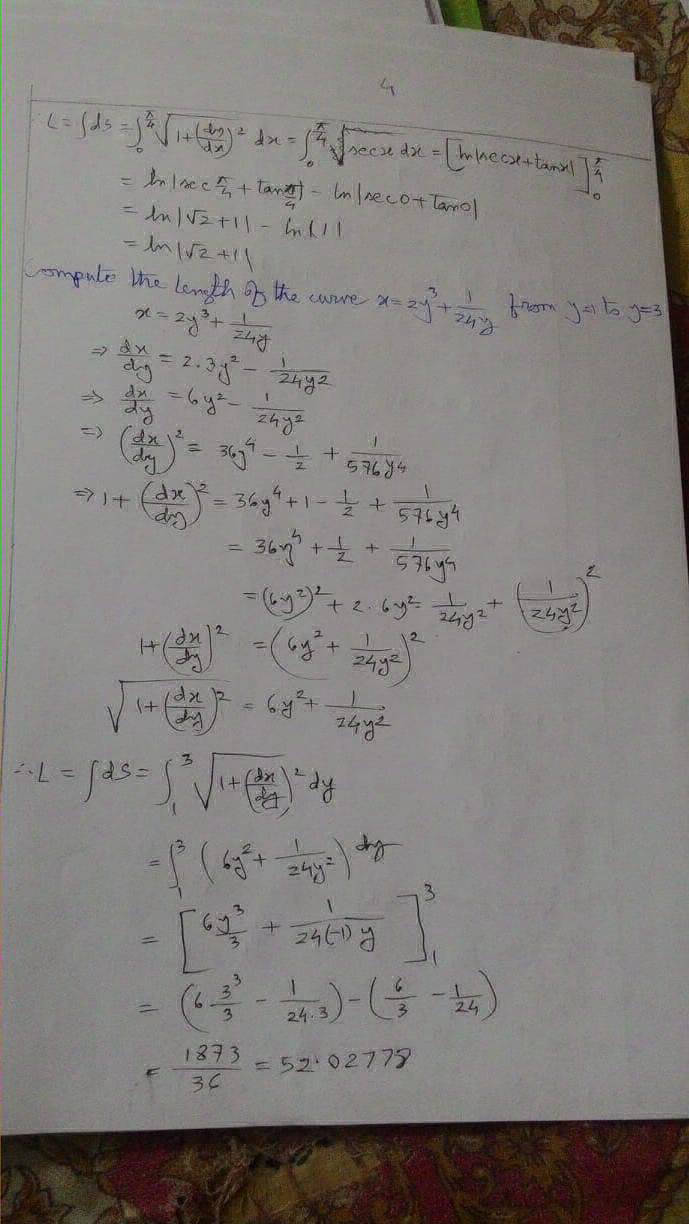 4
∴ L = ∫ds = ∫₀^(π/4) √(1+(dy/dx)²) dx = ∫₀^(π/4) √secx dx = [ln|secx+tanx|]₀^(π/4)
= ln|sec π/4 + tan π/4| - ln|sec0+tan0|
= ln|√2+1| - ln|1|
= ln|√2+1|
Compute the length of the curve x=2y³+1/24y from y=1 to y=3
x=2y³+1/24y
⇒ dx/dy = 2·3y² - 1/24y²
⇒ dx/dy = 6y² - 1/24y²
⇒ (dx/dy)² = 36y⁴ - 1/2 + 1/576y⁴
⇒ 1+(dx/dy)² = 36y⁴+1-1/2+1/576y⁴
= 36y⁴+1/2+1/576y⁴
= (6y²)²+2·6y²·1/24y²+(1/24y²)²
1+(dx/dy)² = (6y²+1/24y²)²
√(1+(dx/dy)²) = 6y²+1/24y²
∴ L = ∫ds = ∫₁³ √(1+(dx/dy)²) dy
= ∫₁³ (6y²+1/24y²) dy
= [6y³/3+1/24(-1)y]₁³
= (6·3³/3 - 1/24·3) - (6/3 - 1/24)
= 1873/36 = 52.02778